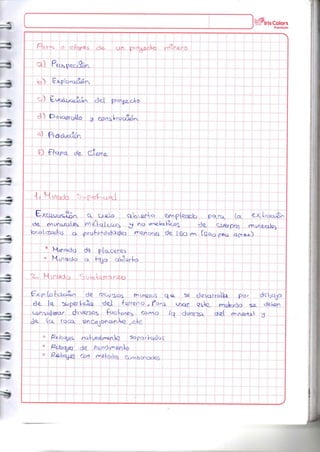 IrisColors
Fases o etapas de un proyecto minero
a) Prospección
b) Exploración
c) Evaluación del proyecto
d) Desarrollo y construcción
e) Producción
f) Etapa de Cierre
1. Minado Superficial
Excavación a cielo abierto empleado para la extracción
de minerales metálicos y no metálicos de cuerpos minerales
localizados a profundidades menores de 160 m
* Minado de placeres
* Minado a tajo abierto
2. Minado Subterráneo
Explotación de recursos mineros que se desarrolla por debajo
de la superficie del terreno. Para usar este método se deben
considerar diversos factores como la dureza del mineral y
de la roca encajonante, etc
* Rebajes naturalmente soportados
* Rebajes de hundimiento
* Rebajes con métodos combinados